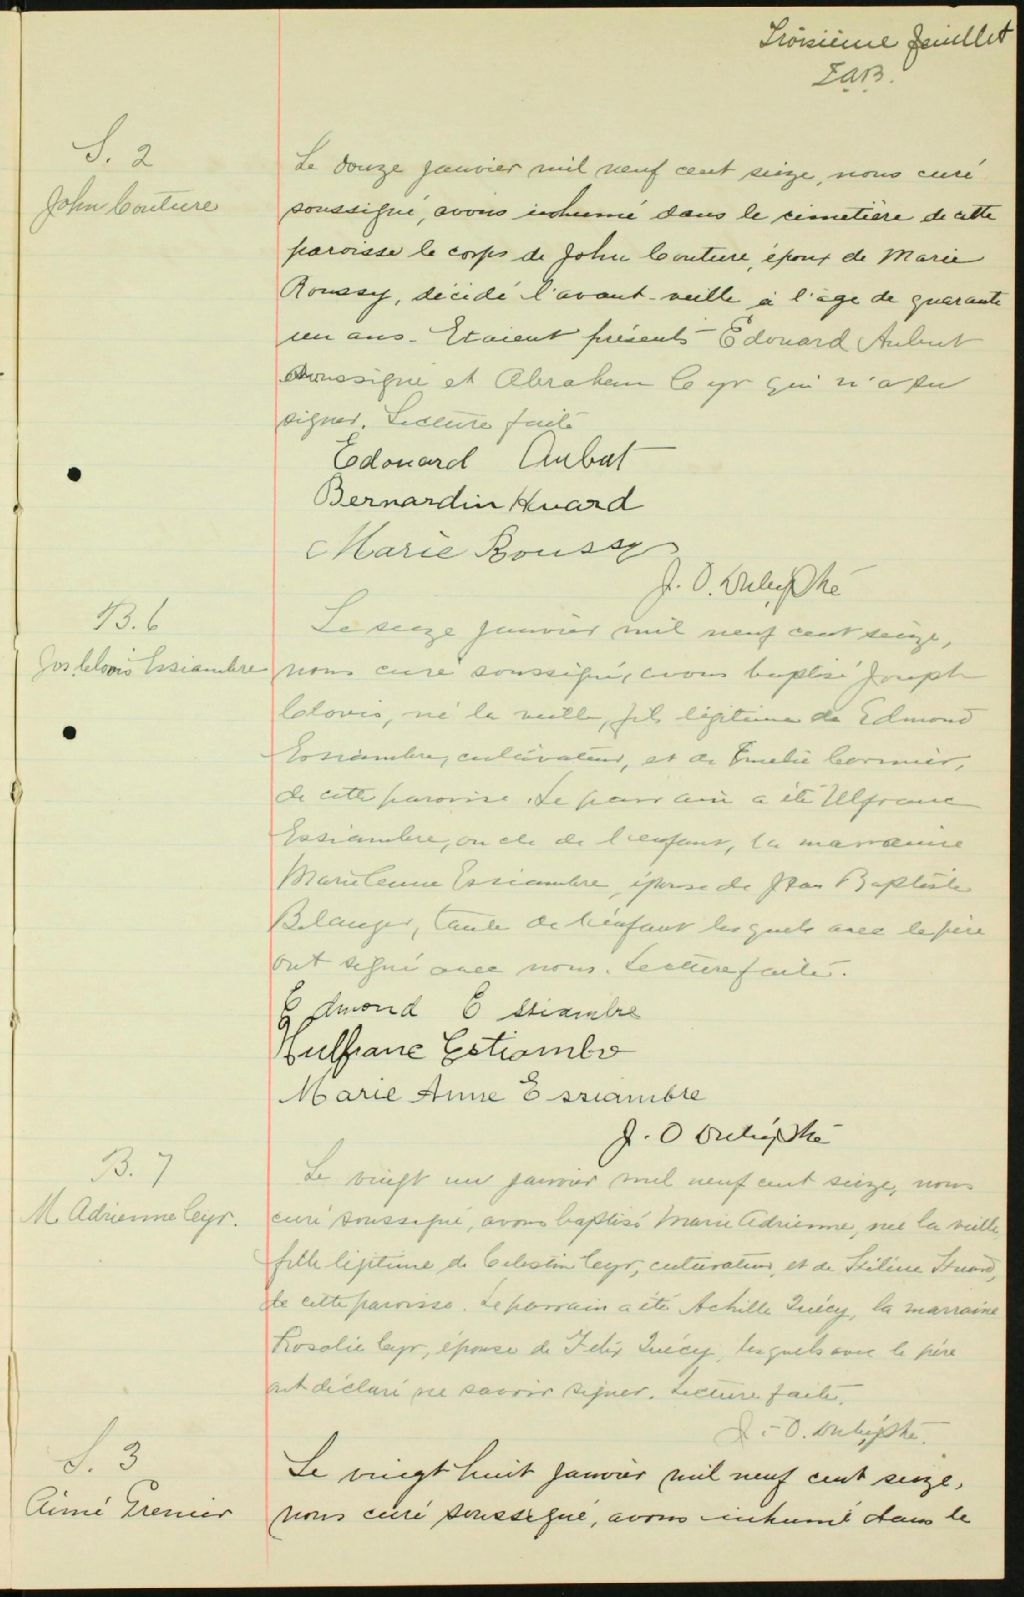 Troisième feuillet
Z.A.B.
S. 2
John Couture
Le douze janvier mil neuf cent seize, nous curé
soussigné, avons inhumé dans le cimetière de cette
paroisse le corps de John Couture, époux de Marie
Roussy, décédé l'avant-veille à l'âge de quarante
un ans. Etaient présents Edouard Aubut
soussigné et Abraham Cyr qui n'a su
signer. Lecture faite
Edouard Aubut
Bernardin Huard
Marie Roussy
J. O. Ptre
B. 6
Jos. Clovis Essiambre
Le seize janvier mil neuf cent seize,
nous curé soussigné, avons baptisé Joseph
Clovis, né la veille, fils légitime de Edmond
Essiambre, cultivateur, et de Emelie Cormier,
de cette paroisse. Le parrain a été Ulfranc
Essiambre, oncle de l'enfant, la marraine
Marie Anne Essiambre, épouse de Jean Baptiste
Belanger, tante de l'enfant lesquels avec le père
ont signé avec nous. Lecture faite.
Edmond Essiambre
Wulfranc Estiambre
Marie Anne Essiambre
J. O Ptre
B. 7
M. Adrienne Cyr.
Le vingt un janvier mil neuf cent seize, nous
curé soussigné, avons baptisé Marie Adrienne, née la veille,
fille légitime de Celestin Cyr, cultivateur, et de Huard,
de cette paroisse. Le parrain a été Achille Quécy, la marraine
Rosalie Cyr, épouse de Felix Quécy, lesquels avec le père
ont déclaré ne savoir signer. Lecture faite.
J. O. Ptre.
S. 3
Aimé Grenier
Le vingt huit janvier mil neuf cent seize,
nous curé soussigné, avons inhumé dans le